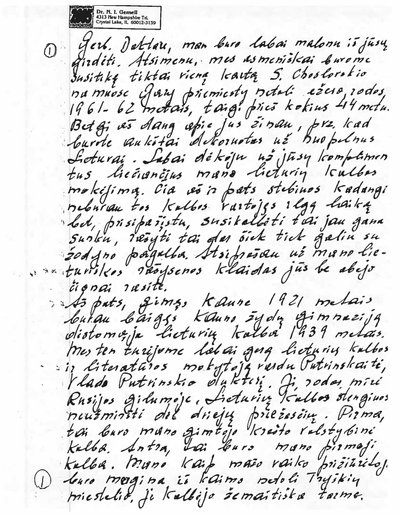 Dr. N. I. Gemell
4313 New Hampshire Trl.
Crystal Lake, IL 60012-3159
①
Gerb. Daktau, man buvo labai malonu iš jūsų
girdėti. Atsimenu, mes asmeniškai buvome
susitikę tiktai vieną kartą S.
namuose Gary priemiesty netoli ežero, rodos,
1961-62 metais, taigi prieš kokius 44 metu.
Betgi aš daug apie jus žinau, prz. kad
buvote aukštai dekoruotas už nuopelnus
Lietuvai. Labai dėkoju už jūsų komplimen
tus liečiančius mano lietuvių kalbos
mokėjimą. Čia aš ir pats stebiuos kadangi
nebuvau tos kalbos vartojęs ilgą laiką
bet, prisipažįstu, susikalbėti tai jau gana
sunku, rašyti tai dar šiek tiek galiu su
žodyno pagalba. Atsiprašau už mano lie-
tuviškos rašysenos klaidas jūs be abejo
čionai rasite.
Aš pats, gimęs Kaune 1921 metais
buvau baigęs Kauno žydų gimnaziją
dėstomąja lietuvių kalba 1939 metais.
Mes ten turėjome labai gerą lietuvių kalbos
ir literatūros mokytoją vardu Putvinskaitė,
Vlado Putvinskio dukterį. Ji, rodos, mirė
Rusijos gilumoje. Lietuvių kalbos stengiuos
neužmiršti dėl dviejų priežasčių. Pirma,
tai buvo mano gimtojo krašto valstybinė
kalba. Antra, tai buvo mano pirmoji
kalba. Mano kaip mažo vaiko prižiūrėtoj.
buvo mergina iš kaimo netoli
miestelio, ji kalbėjo žemaitiška tarme.
①